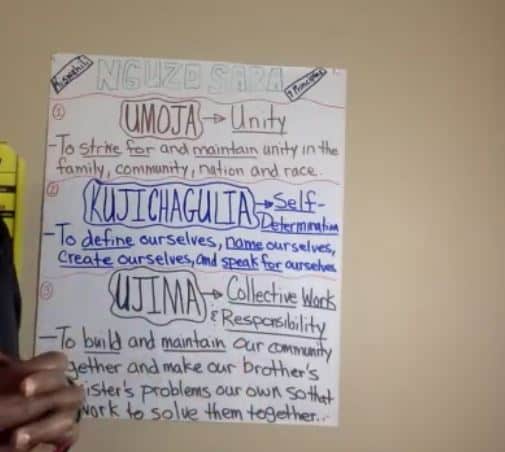 Kiswahili
NGUZO SABA
7 Principles
1
UMOJA → Unity
-To strive for and maintain unity in the
family, community, nation and race.
2
KUJICHAGULIA → Self-
Determination
-To define ourselves, name ourselves,
Create ourselves, and speak for ourselves
3
UJIMA → Collective Work
& Responsibility
-To build and maintain our community
gether and make our brother's
ister's problems our own so that
work to solve them together...